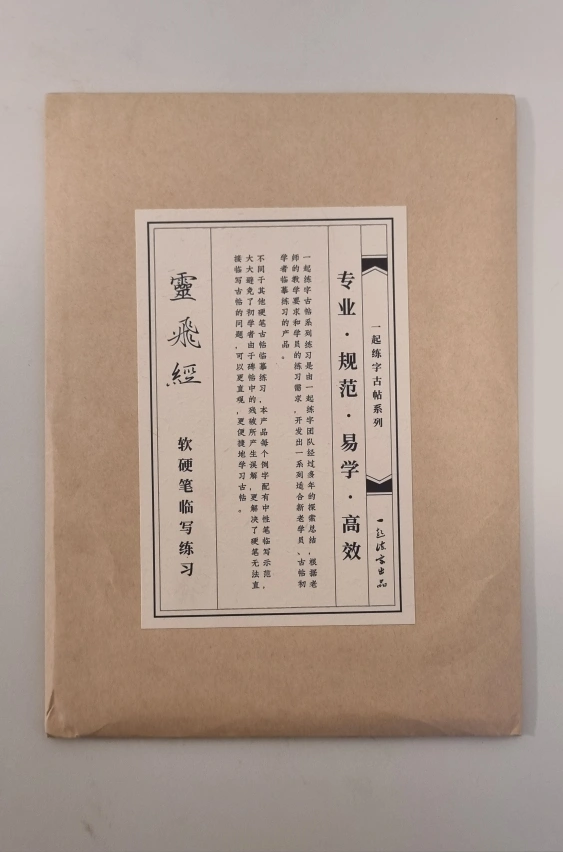 一起练字古帖系列
一起练字出品
专业·规范·易学·高效
一起练字古帖系列练习是由一起练字团队经过多年的探索总结，根据老
师的教学要求和学员的练习需求，开发出一系列适合新老学员、古帖初
学者临摹练习的产品。
不同于其他硬笔古帖临摹练习，本产品每个例字配有中性笔临写示范，
大大避免了初学者由于碑帖中的残破所产生误解，更解决了硬笔无法直
接临写古帖的问题，可以更直观，更便捷地学习古帖。
靈飛經
软硬笔临写练习